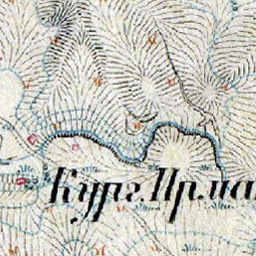 Кург. Ирма